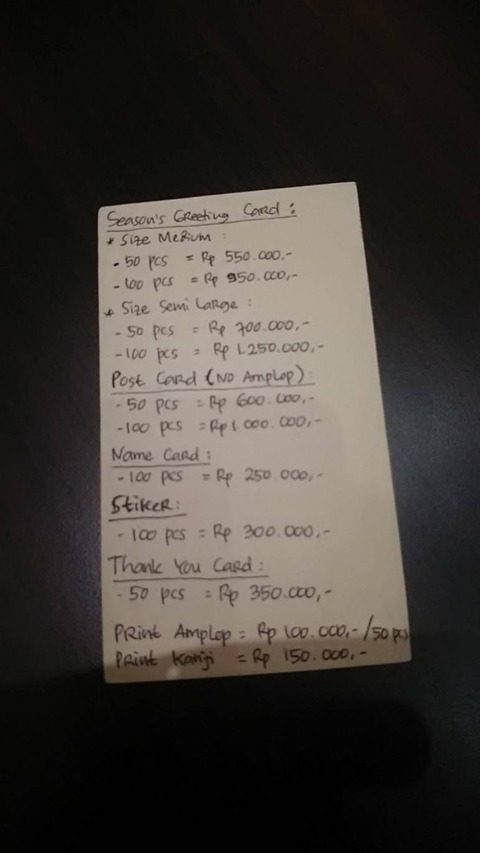 Season's Greeting Card :
* Size Medium :
- 50 pcs = Rp 550.000,-
- 100 pcs = Rp 950.000,-
* Size Semi Large :
- 50 pcs = Rp 700.000,-
- 100 pcs = Rp 1.250.000,-
Post Card (No Amplop) :
- 50 pcs = Rp 600.000,-
- 100 pcs = Rp 1.000.000,-
Name Card :
- 100 pcs = Rp 250.000,-
Stiker :
- 100 pcs = Rp 300.000,-
Thank You Card :
- 50 pcs = Rp 350.000,-
Print Amplop = Rp 100.000,- / 50 pcs
Print Kanji = Rp 150.000,-